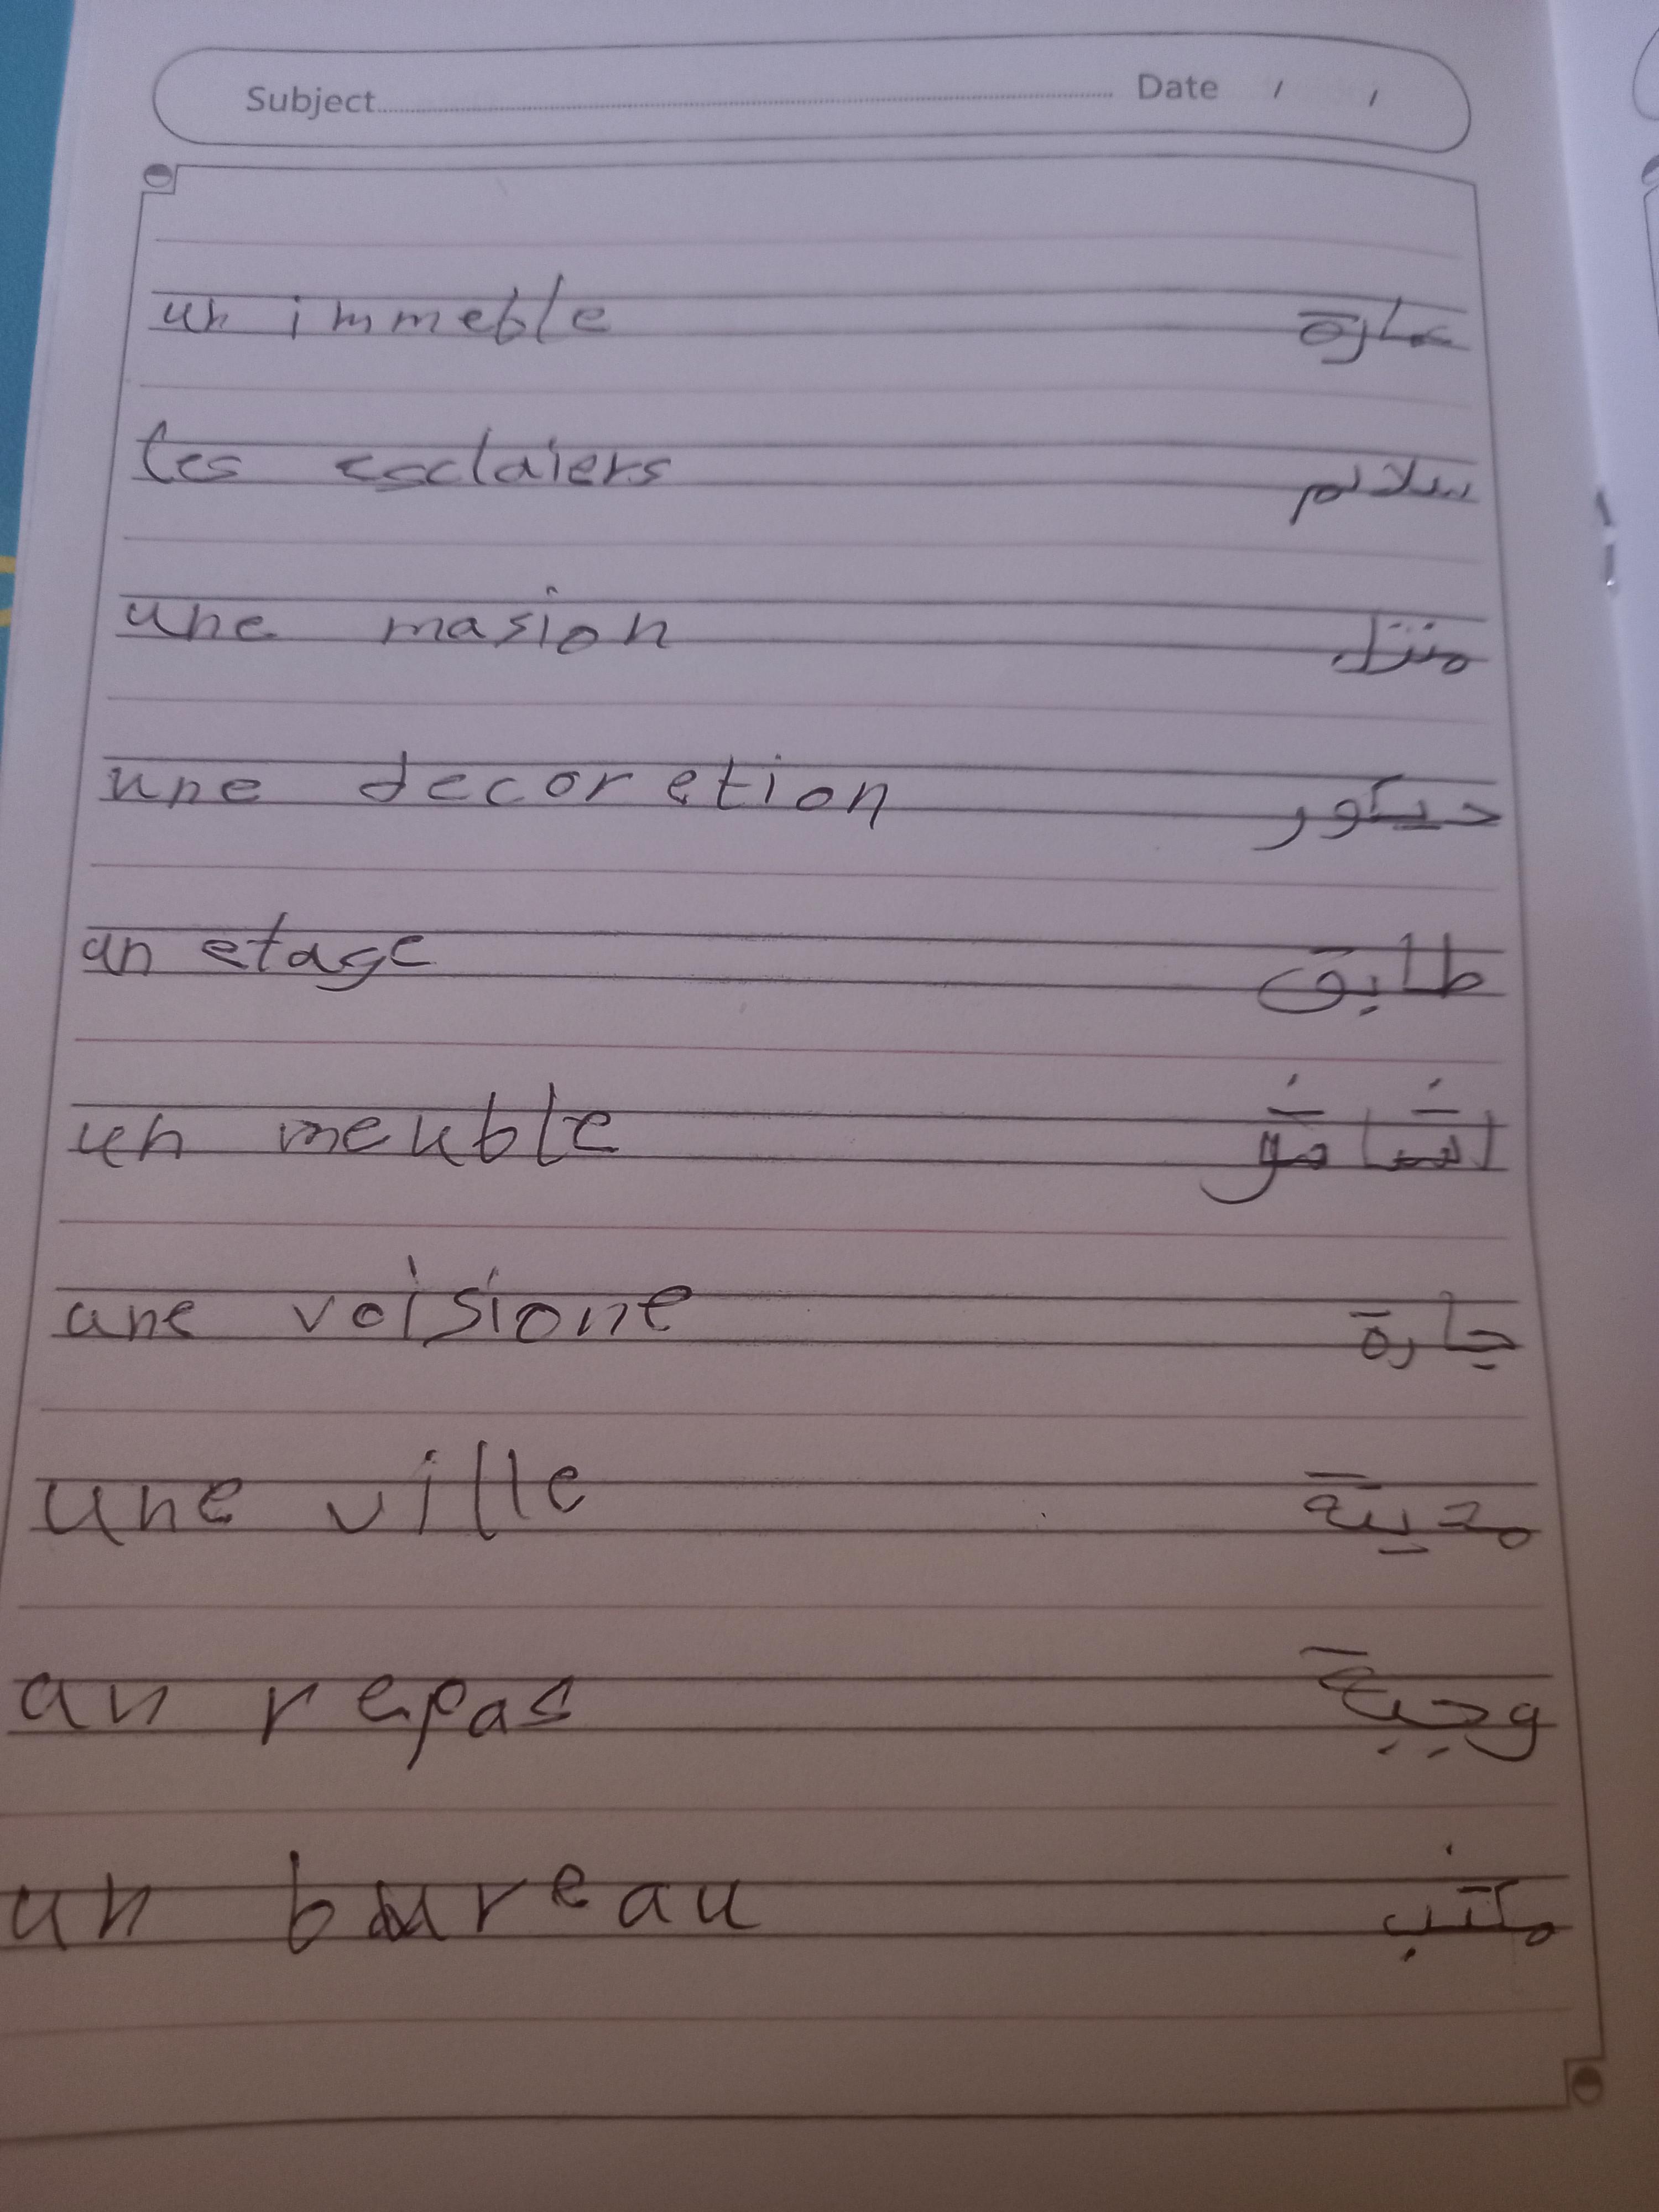 Subject Date / /
un immeble عمارة
les esclaiers سلالم
une masion منزل
une decoretion ديكور
an etage طابق
un meuble اثاث
une voisione جارة
une ville مدينة
an repas وجبة
un bureau مكتب